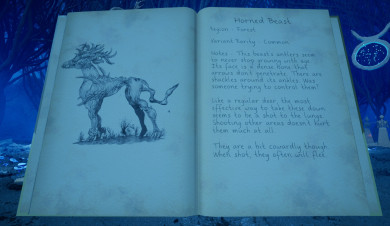 Horned Beast
Region: Forest
Variant Rarity: Common
Notes: This beasts antlers seem
to never stop growing with age.
Its face is a dense bone that
arrows don't penetrate. There are
shackles around its ankles. Was
someone trying to control them?
Like a regular deer, the most
effective way to take these down
seems to be a shot to the lungs.
Shooting other areas doesn't hurt
them much at all.
They are a bit cowardly though
when shot, they often will flee.